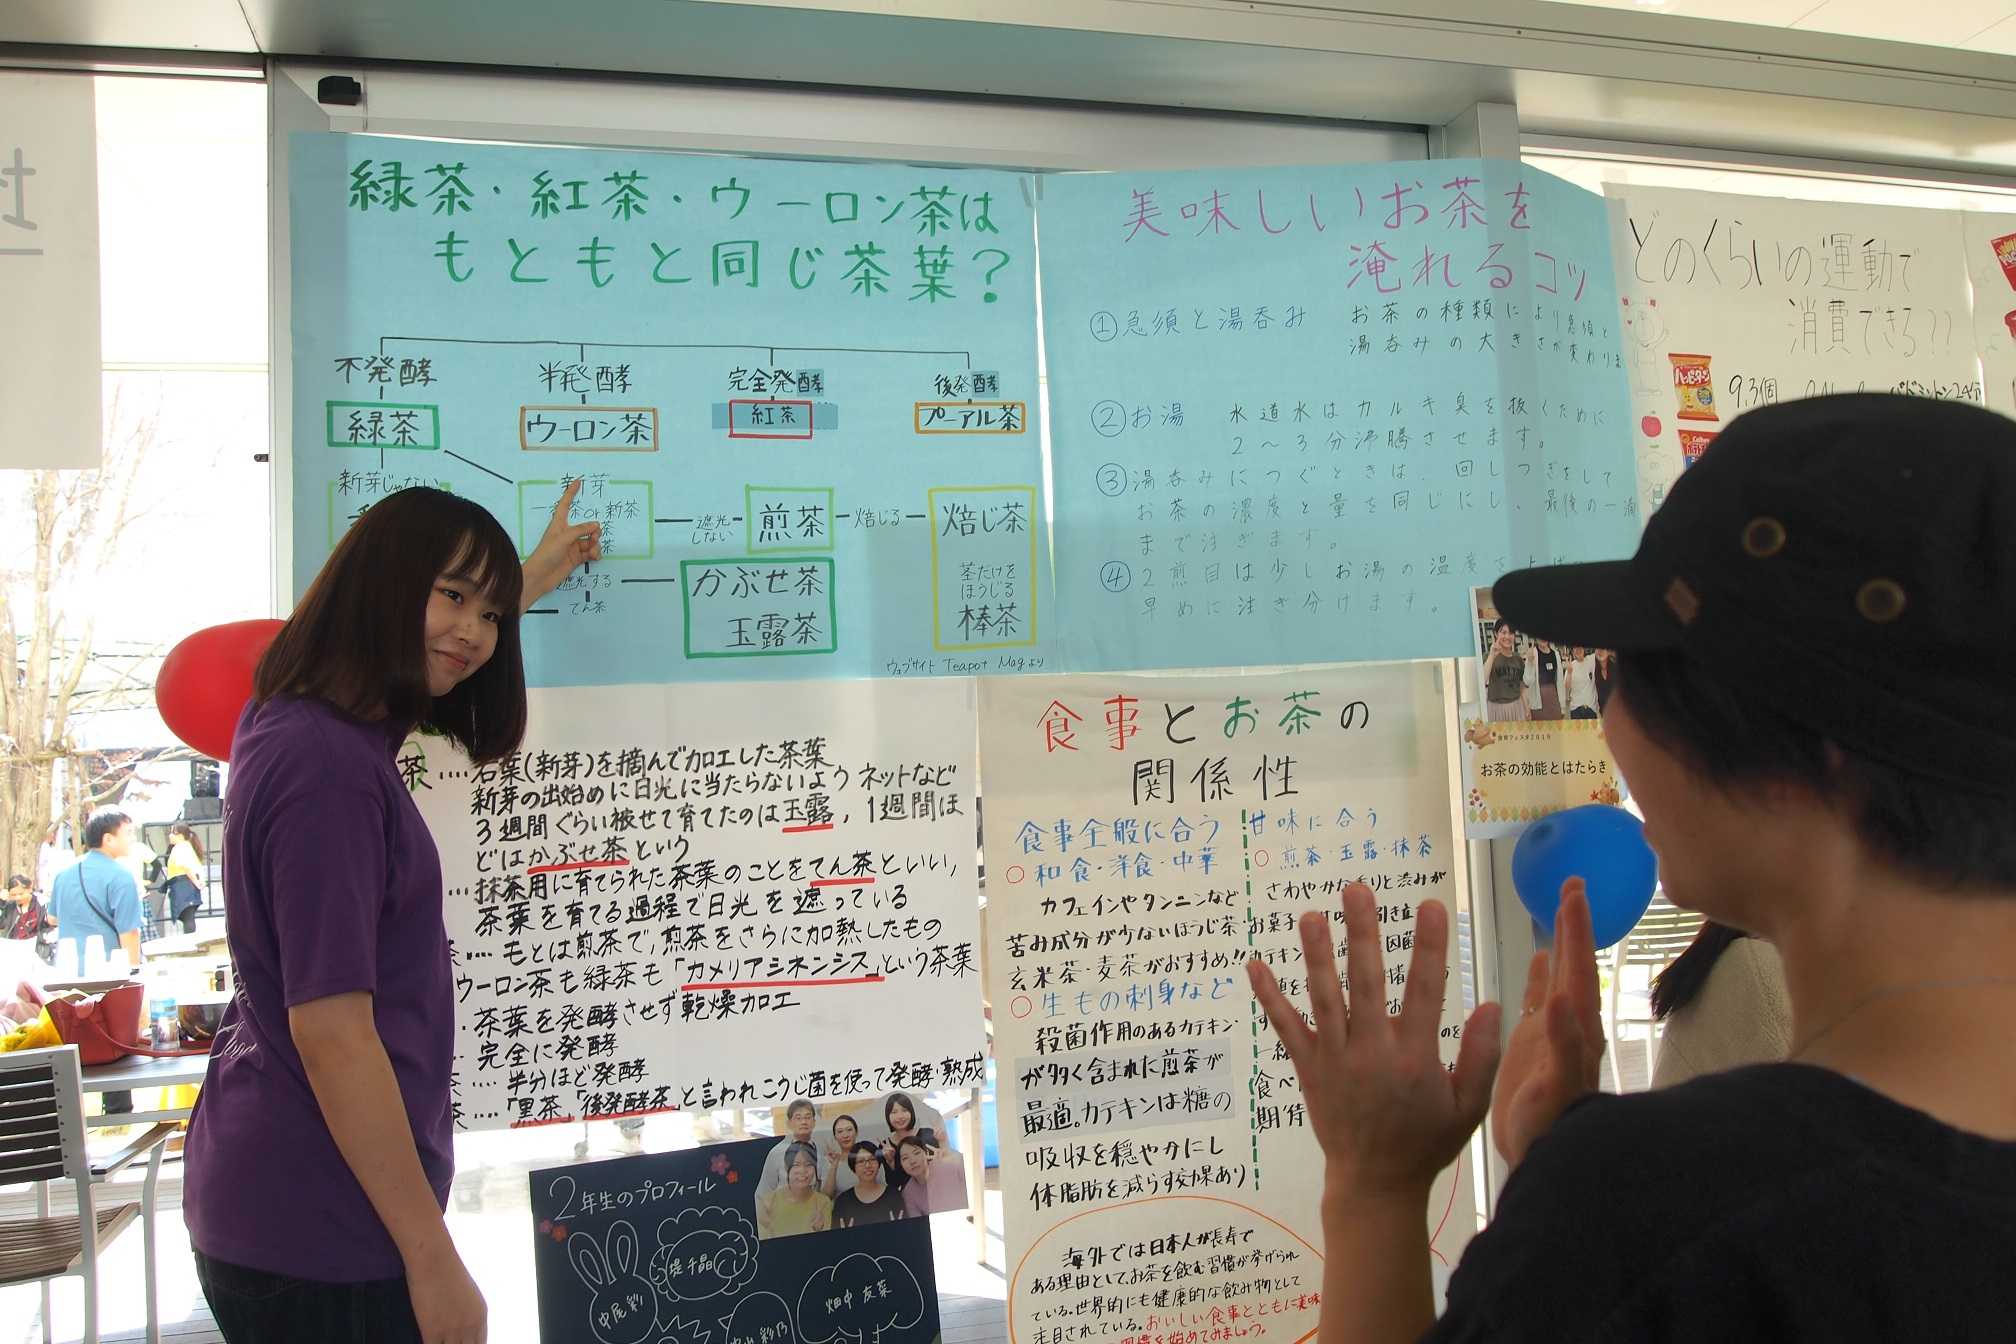 緑茶・紅茶・ウーロン茶は
もともと同じ茶葉?
不発酵
半発酵
完全発酵
後発酵
緑茶
ウーロン茶
紅茶
プーアル茶
新芽じゃない
新芽
一番茶or新茶
茶
茶
遮光しない
煎茶
焙じる
焙じ茶
遮光する
てん茶
かぶせ茶
玉露茶
茎だけを
ほうじる
棒茶
ウェブサイト Teapot Magより
美味しいお茶を
淹れるコツ
①急須と湯呑み お茶の種類により急須と
湯呑みの大きさが変わりま
②お湯 水道水はカルキ臭を抜くために
2〜3分沸騰させます。
③湯呑みにつぐときは、回しつぎをして
お茶の濃度と量を同じにし、最後の一滴
まで注ぎます。
④2煎目は少しお湯の温度を上げ
早めに注ぎ分けます。
どのくらいの運動で
消費できる??
ハッピーターン
9.3個
バドミントン24分
茶....若葉(新芽)を摘んで加工した茶葉
新芽の出始めに日光に当たらないようネットなど
3週間ぐらい被せて育てたのは玉露,1週間ほ
どはかぶせ茶という
...抹茶用に育てられた茶葉のことをてん茶といい,
茶葉を育てる過程で日光を遮っている
茶....もとは煎茶で,煎茶をさらに加熱したもの
ウーロン茶も緑茶も「カメリアシネンシス」という茶葉
・茶葉を発酵させず乾燥加工
...完全に発酵
茶....半分ほど発酵
茶....「黒茶」「後発酵茶」と言われこうじ菌を使って発酵・熟成
食事とお茶の
関係性
食事全般に合う
○和食・洋食・中華
カフェインやタンニンなど
苦み成分が少ないほうじ茶・
玄米茶・麦茶がおすすめ!!
○生もの刺身など
殺菌作用のあるカテキン
が多く含まれた煎茶が
最適。カテキンは糖の
吸収を穏やかにし
体脂肪を減らす効果あり
甘味に合う
○煎茶・玉露・抹茶
さわやかな香りと渋みが
お菓子
カテキン
食べ
期待
海外では日本人が長寿で
ある理由として、お茶を飲む習慣が挙げられ
ている。世界的にも健康的な飲み物として
注目されている。おいしい食事とともに美味
習慣を始めてみましょう。
お茶の効能とはたらき
2年生のプロフィール
中尾 彩
堤千晶
畑中 友菜
彩乃